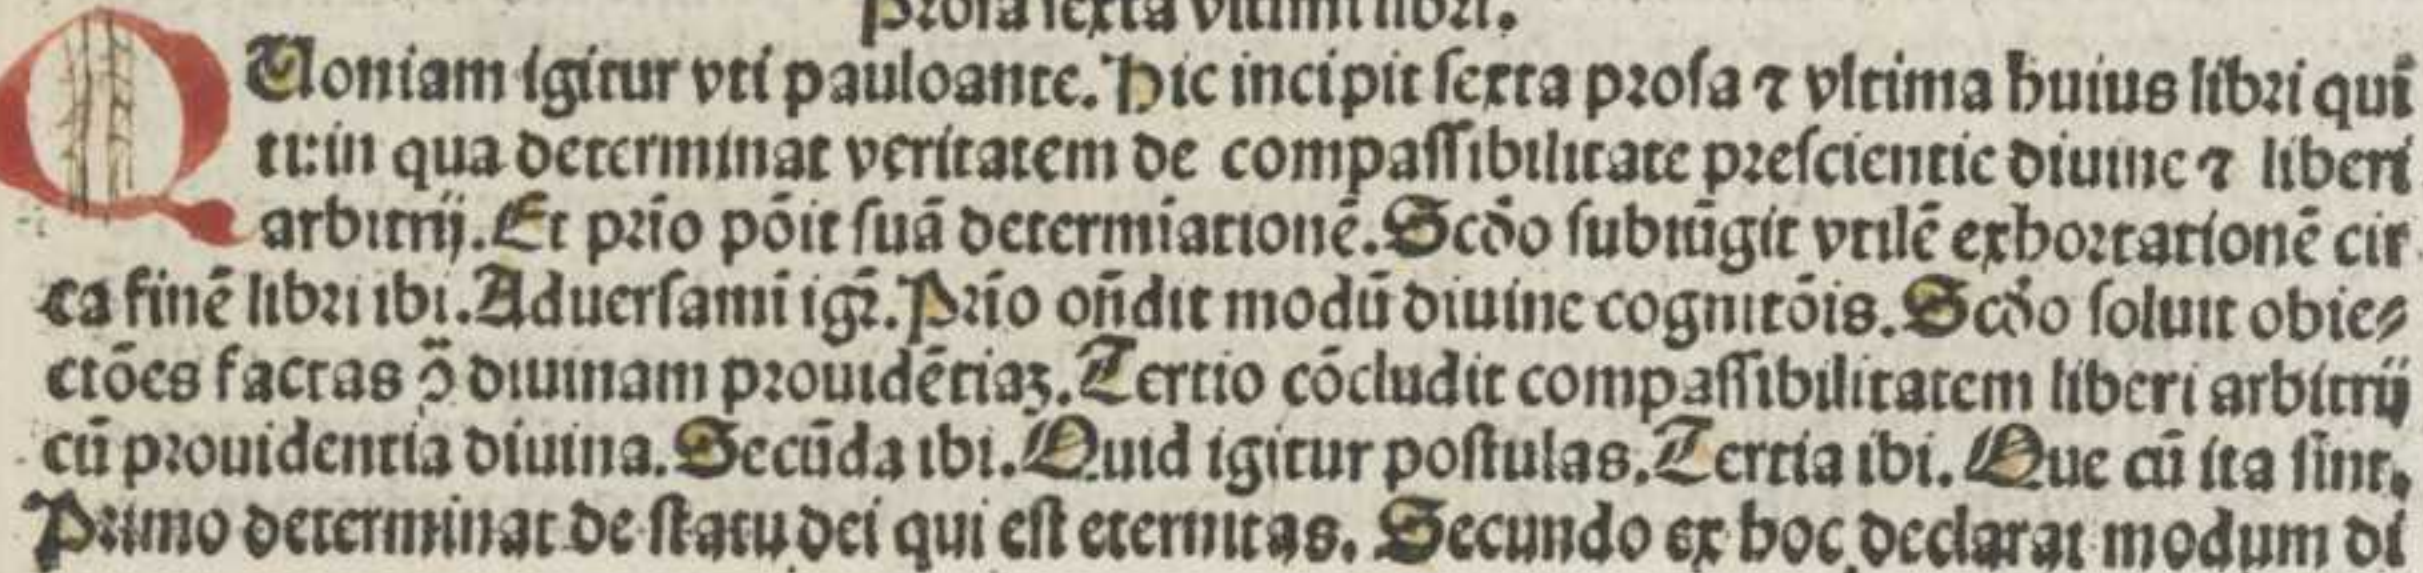 Prosa sexta vltimi libri.
QUoniam igitur vti pauloante. Hic incipit sexta prosa ⁊ vltima huius libri qui
ti:in qua determinat veritatem de compassibilitate prescientie diuine ⁊ liberi
arbitrij. Et prīo pōit suā determīationē. Scḋo subiūgit vtilē exhortationē cir
ca finē libri ibi. Aduersamī igr̄. Prīo on̄dit modū diuine cognitōis. Scḋo soluit obie⸗
ctōes factas ↄ̄ diuinam prouidētiaꝫ. Tertio cōcludit compassibilitatem liberi arbitrij
cū prouidentia diuina. Secūda ibi. Quid igitur postulas. Tertia ibi. Que cū ita sint.
Primo determinat de statu dei qui est eternitas. Secundo ex hoc declarat modum di